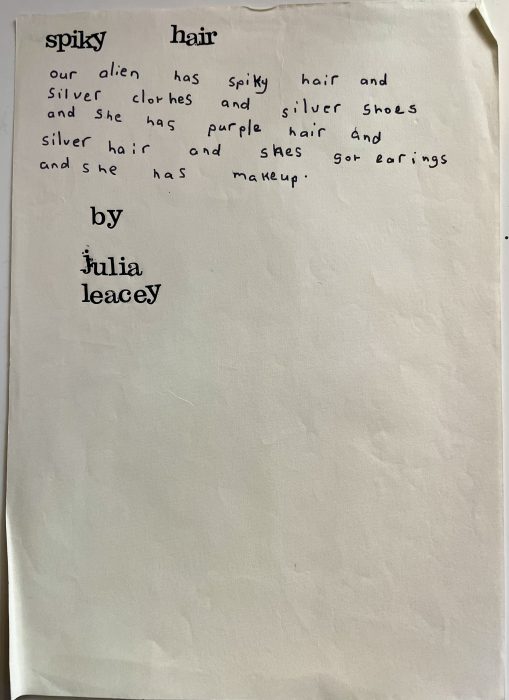 spiky hair
our alien has spiky hair and
silver clothes and silver shoes
and she has purple hair and
silver hair and shes got earings
and she has makeup.
by
julia
leacey